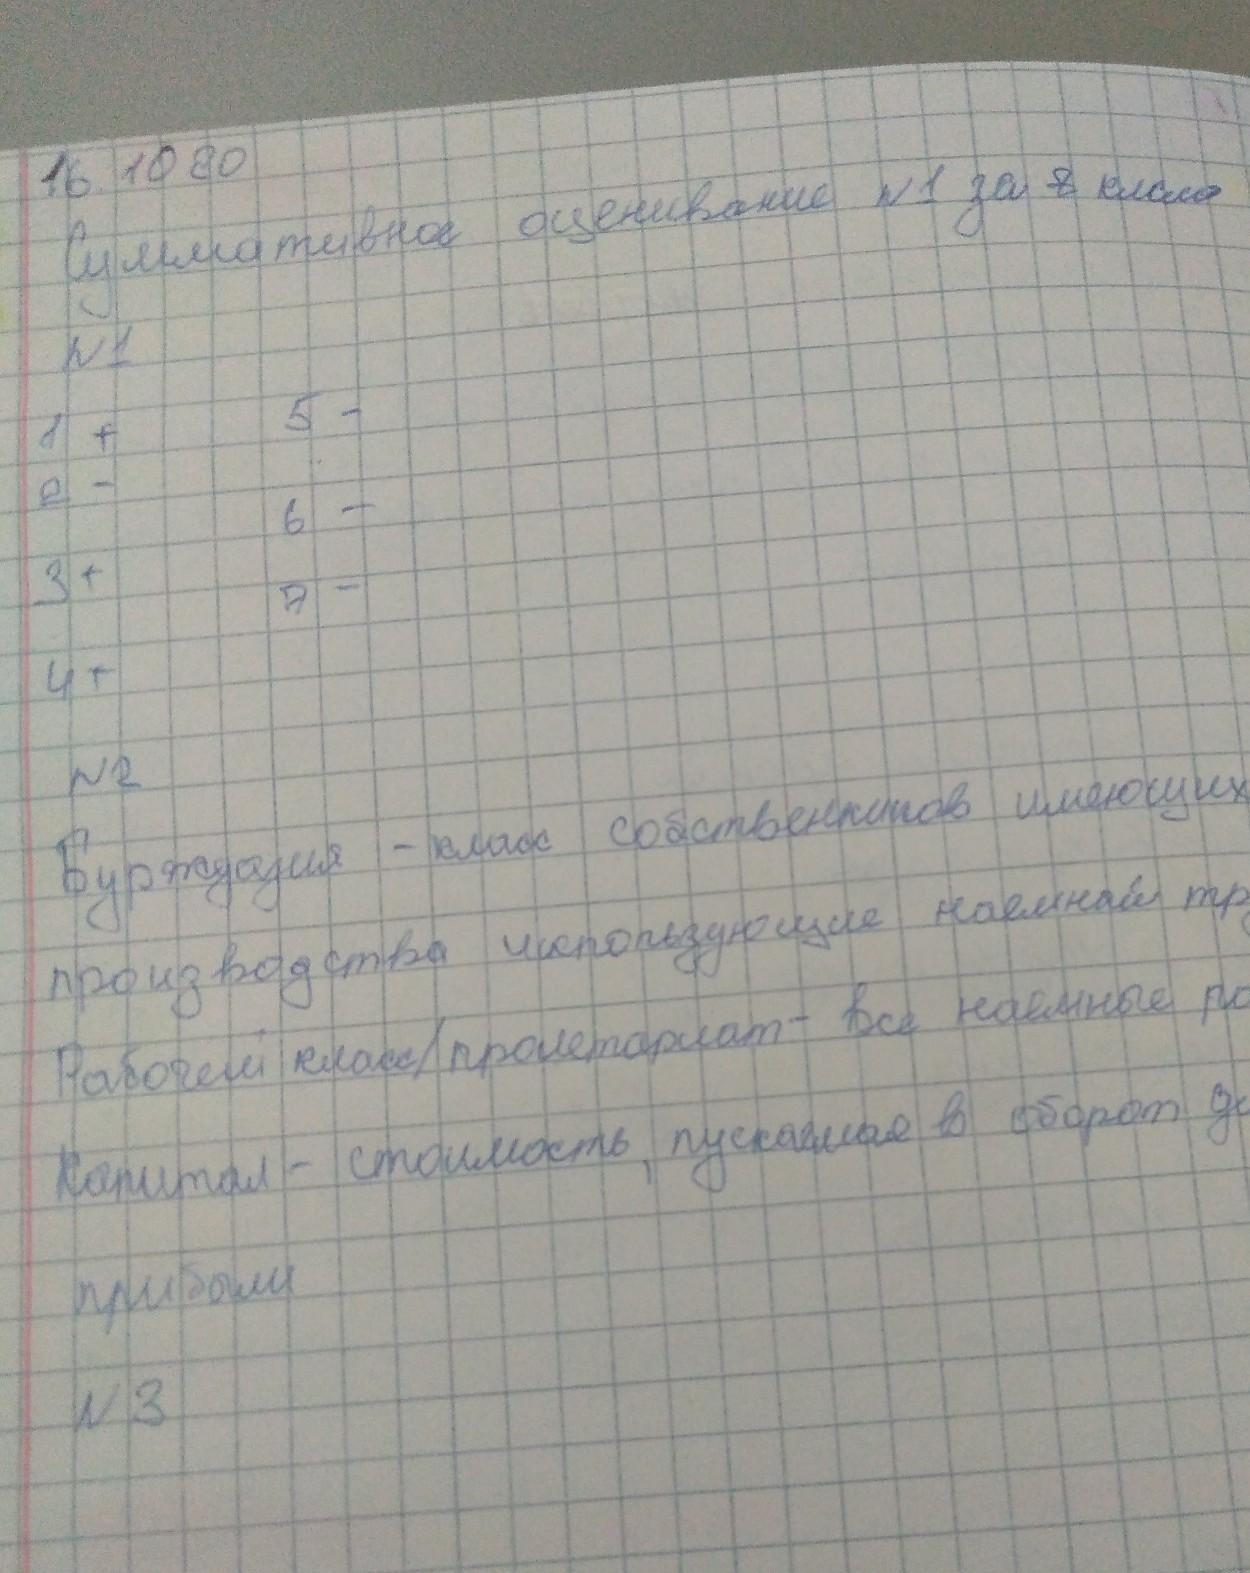 16.10 20
Суммативное оценивание №1 за 8 класс
№1
1 + 5 -
2 - 6 -
3 + 7 -
4 +
№2
Буржуазия - класс собственников имеющих
производства использующие наемный тру
Рабочей класс/пролетариат - все наемные ра
Капитал - стоимость, пускаемая в оборот дл
прибыли
№3